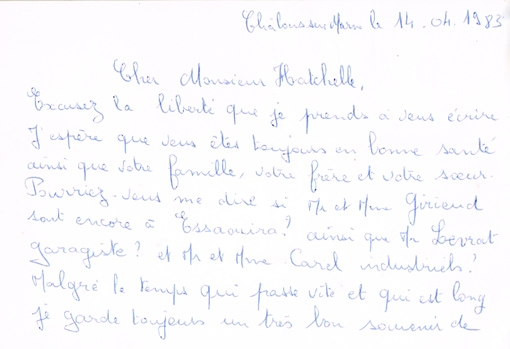 Châlons sur Marne le 14.04.1983
Cher Monsieur Hatchelle,
Excusez la liberté que je prends à vous écrire
J'espère que vous êtes toujours en bonne santé
ainsi que votre famille, votre frère et votre sœur.
Pourriez-vous me dire si Mr et Mme Giriend
sont encore à Essaouira? ainsi que Mr Levrat
garagiste? et Mr et Mme Carel industriels?
Malgré le temps qui passe vite et qui est long
je garde toujours un très bon souvenir de